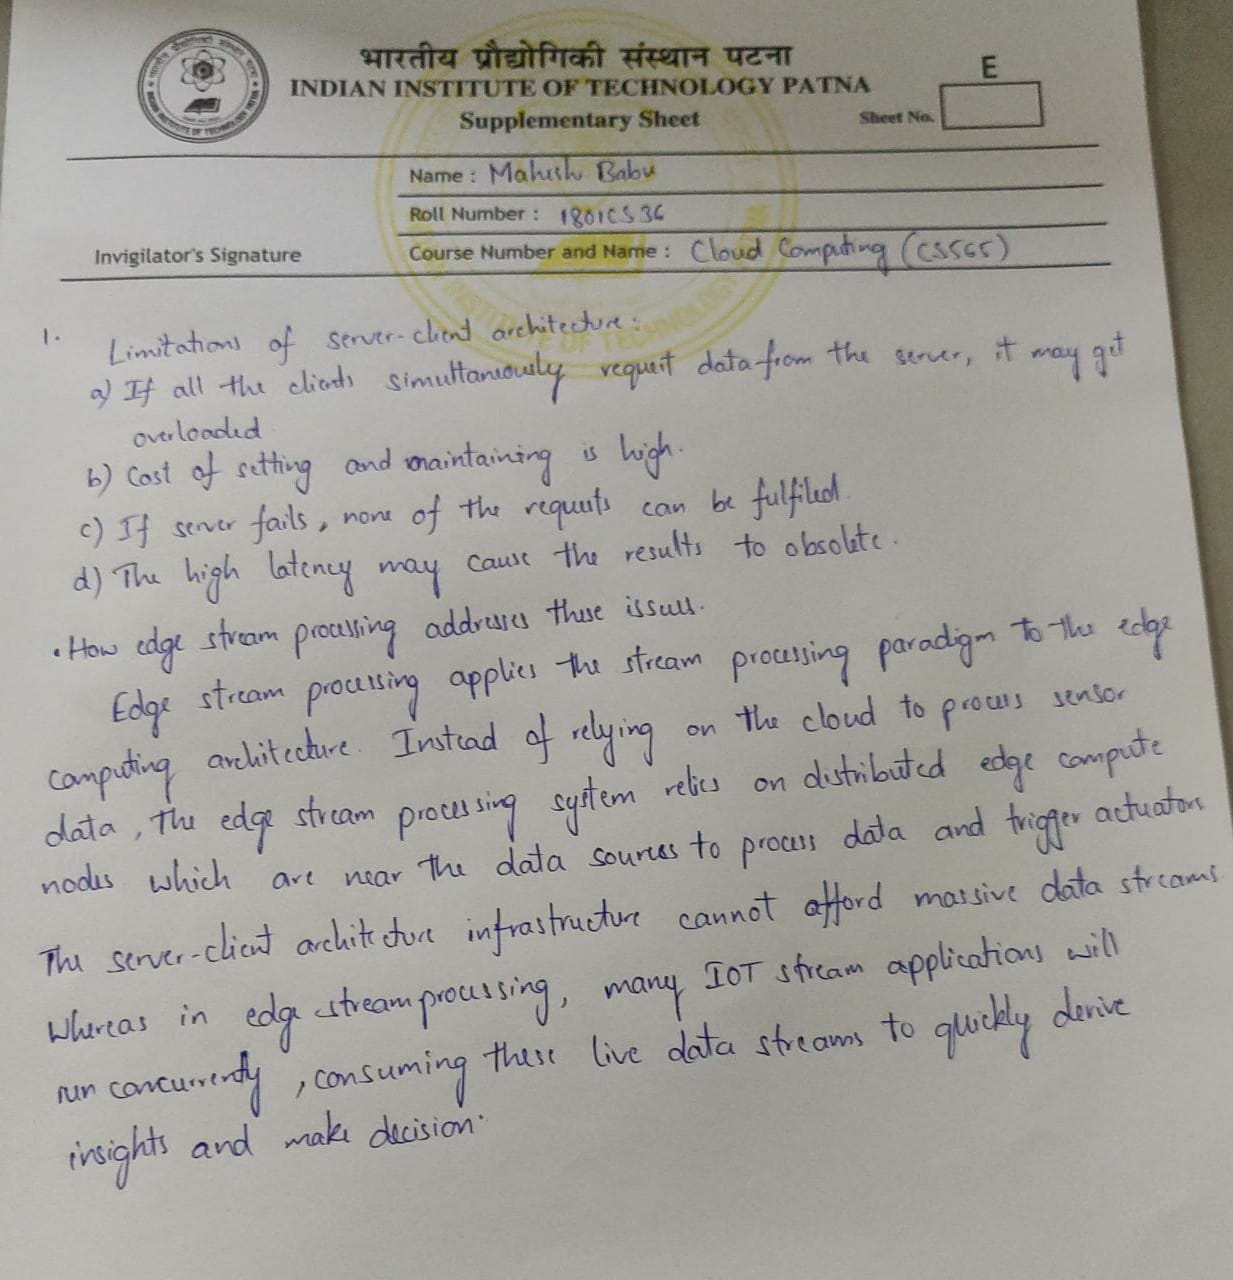 भारतीय प्रौद्योगिकी संस्थान पटना
INDIAN INSTITUTE OF TECHNOLOGY PATNA
Supplementary Sheet
E
Sheet No.
Name : Mahesh Babu
Roll Number : 1801CS36
Invigilator's Signature
Course Number and Name : Cloud Computing (CS565)
1. Limitations of server-client architecture:
a) If all the clients simultaneously request data from the server, it may get
overloaded
b) Cost of setting and maintaining is high.
c) If server fails, none of the requests can be fulfiled.
d) The high latency may cause the results to obsolete.
• How edge stream processing addresses these issues.
Edge stream processing applies the stream processing paradigm to the edge
computing architecture. Instead of relying on the cloud to process sensor
data, The edge stream processing system relies on distributed edge compute
nodes which are near the data sources to process data and trigger actuators
The server-client architecture infrastructure cannot afford massive data streams
Whereas in edge stream processing, many IOT stream applications will
run concurrently, consuming these live data streams to quickly derive
insights and make decision.